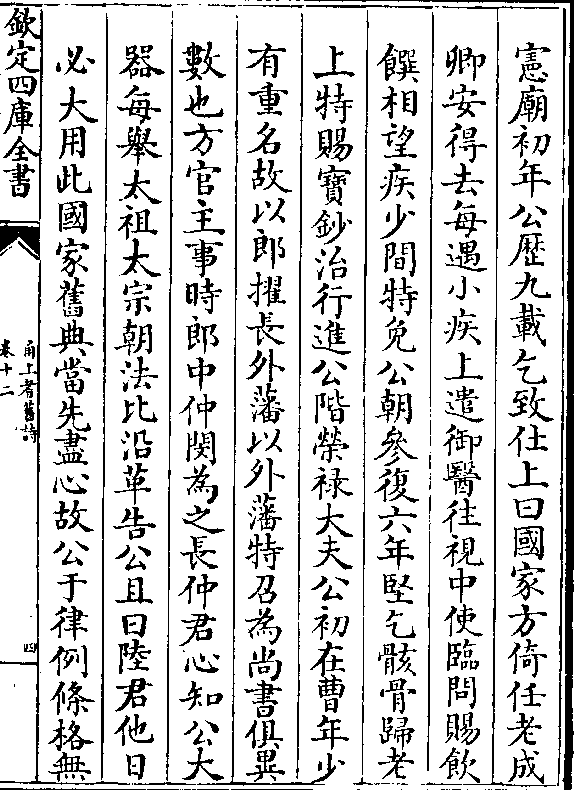 憲廟初年公歴九載乞致仕上曰國家方倚任老成
卿安得去每遇小疾上遣御醫往視中使臨問賜飲
饌相望疾少間特免公朝參復六年堅乞骸骨歸老
上特賜寶鈔治行進公階榮禄大夫公初在曹年少
有重名故以郎擢長外藩以外藩特召為尚書俱異
數也方官主事時郎中仲閔為之長仲君心知公大
器每舉太祖太宗朝法比沿革告公且曰陸君他日
必大用此國家舊典當先盡心故公于律例條格無
欽定四庫全書
甬上耆舊詩
卷十二
四